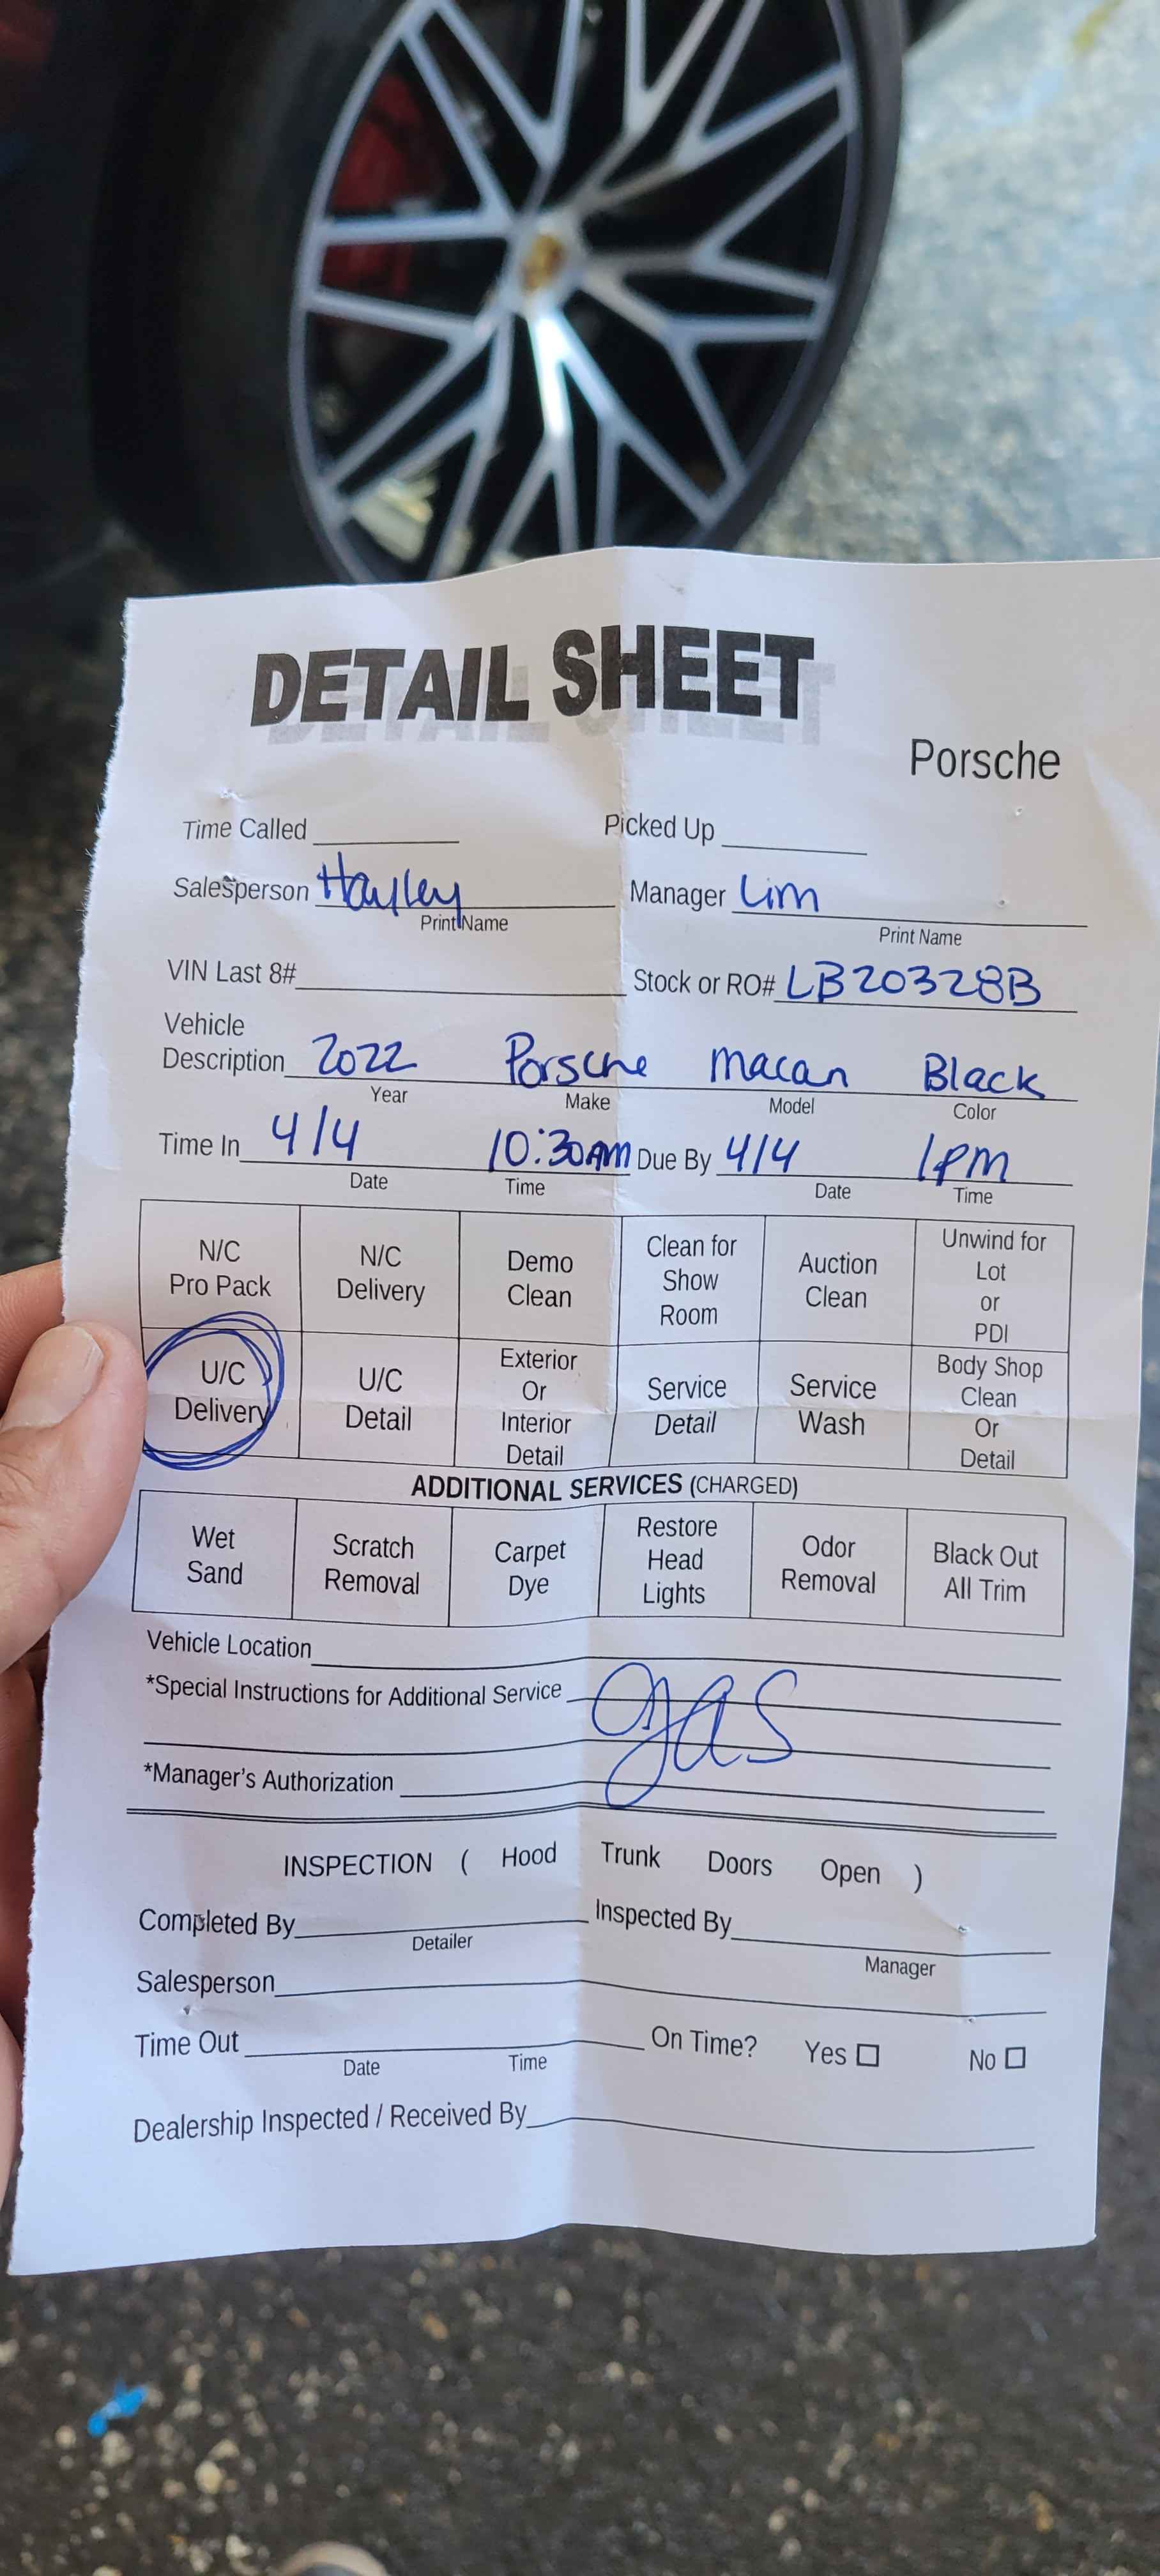 DETAIL SHEET
Porsche
Time Called Picked Up
Salesperson Hayley Manager Lim
Print Name Print Name
VIN Last 8# Stock or RO# LB20328B
Vehicle
Description 2022 Porsche Macan Black
Year Make Model Color
Time In 4/4 10:30AM Due By 4/4 1pm
Date Time Date Time
N/C Pro Pack
N/C Delivery
Demo Clean
Clean for Show Room
Auction Clean
Unwind for Lot or PDI
U/C Delivery
U/C Detail
Exterior Or Interior Detail
Service Detail
Service Wash
Body Shop Clean Or Detail
ADDITIONAL SERVICES (CHARGED)
Wet Sand
Scratch Removal
Carpet Dye
Restore Head Lights
Odor Removal
Black Out All Trim
Vehicle Location
*Special Instructions for Additional Service gas
*Manager's Authorization
INSPECTION ( Hood Trunk Doors Open )
Completed By Inspected By
Detailer Manager
Salesperson
Time Out On Time? Yes ☐ No ☐
Date Time
Dealership Inspected / Received By